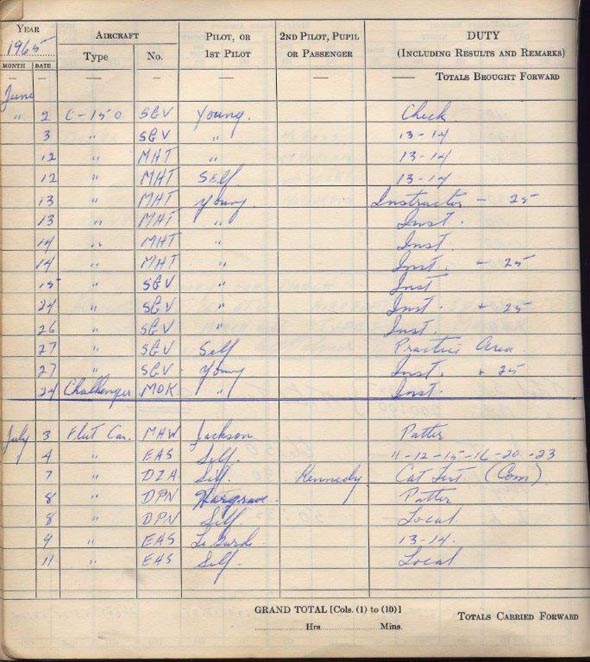 YEAR AIRCRAFT PILOT, OR 2ND PILOT, PUPIL DUTY
1965 Type No. 1ST PILOT OR PASSENGER (INCLUDING RESULTS AND REMARKS)
MONTH DATE
— — — — — TOTALS BROUGHT FORWARD
June
" 2 C-150 SGV Young. Check
3 " SGV " 13-14
12 " MHT " 13-14
12 " MHT Self 13-14
13 " MHT Young. Instructor - 25
13 " MHT " Inst.
14 " MHT " Inst.
14 " MHT " Inst. - 25
15 " SGV " Inst
24 " SGV " Inst. + 25
26 " SGV " Inst.
27 " SGV Self Practice Area.
27 " SGV Young Inst. + 25
24 Challenger MOK " Inst.
July 3 Fleet Can. MAW Jackson Patter
4 " EAS Self. 11-12-15-16-20-23
7 " DZA Self. Kennedy Cat Test (Com)
8 " DPN Hargrave. Patter
8 " DPN Self. Local
9 " EAS 13-14.
11 " EAS Self. Local
GRAND TOTAL [Cols. (1) to (10)] TOTALS CARRIED FORWARD
Hrs Mins.